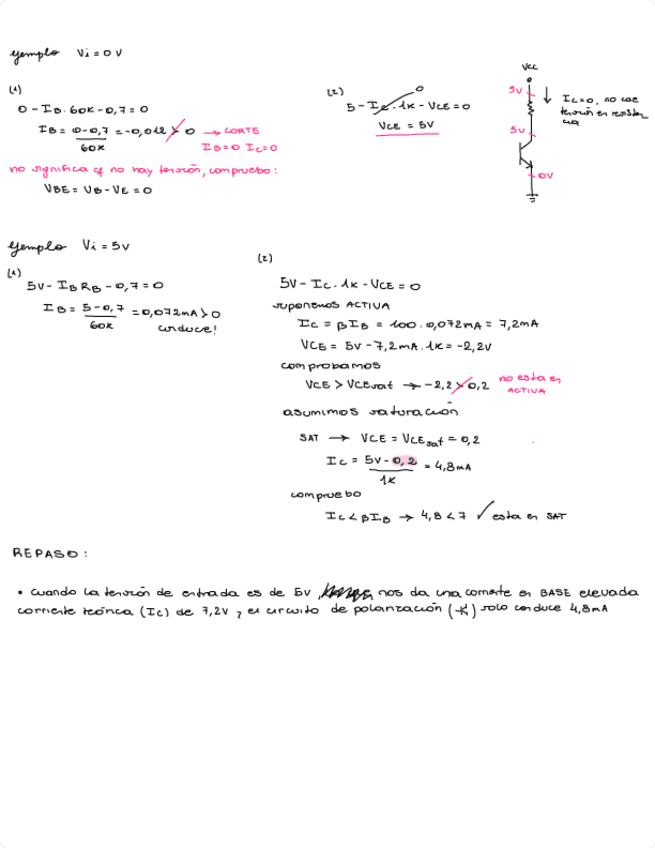 ejemplo Vi = 0 V
(1)
0 - IB · 60K - 0,7 = 0
IB = 0-0,7 / 60K = -0,012 > 0 → CORTE
IB=0 IC=0
no significa q no hay tensión, compruebo:
VBE = VB - VE = 0
(2)
0
5 - IC · 1K - VCE = 0
VCE = 5V
VCC
5V
5V
0V
IC=0, no cae
tensión en resisten
cia
ejemplo Vi = 5V
(1)
5V - IB RB - 0,7 = 0
IB = 5-0,7 / 60K = 0,072mA > 0
conduce!
(2)
5V - IC · 1K - VCE = 0
suponemos ACTIVA
IC = βIB = 100 · 0,072mA = 7,2mA
VCE = 5V - 7,2mA · 1K = -2,2V
comprobamos
VCE > VCEsat → -2,2 > 0,2 no esta en
ACTIVA
asumimos saturación
SAT → VCE = VCEsat = 0,2
IC = 5V - 0,2 / 1K = 4,8mA
compruebo
IC < βIB → 4,8 < 7 ✓ esta en SAT
REPASO:
• cuando la tensión de entrada es de 5V, nos da una corriente en BASE elevada
corriente teórica (IC) de 7,2V, el circuito de polarización ( ) solo conduce 4,8mA